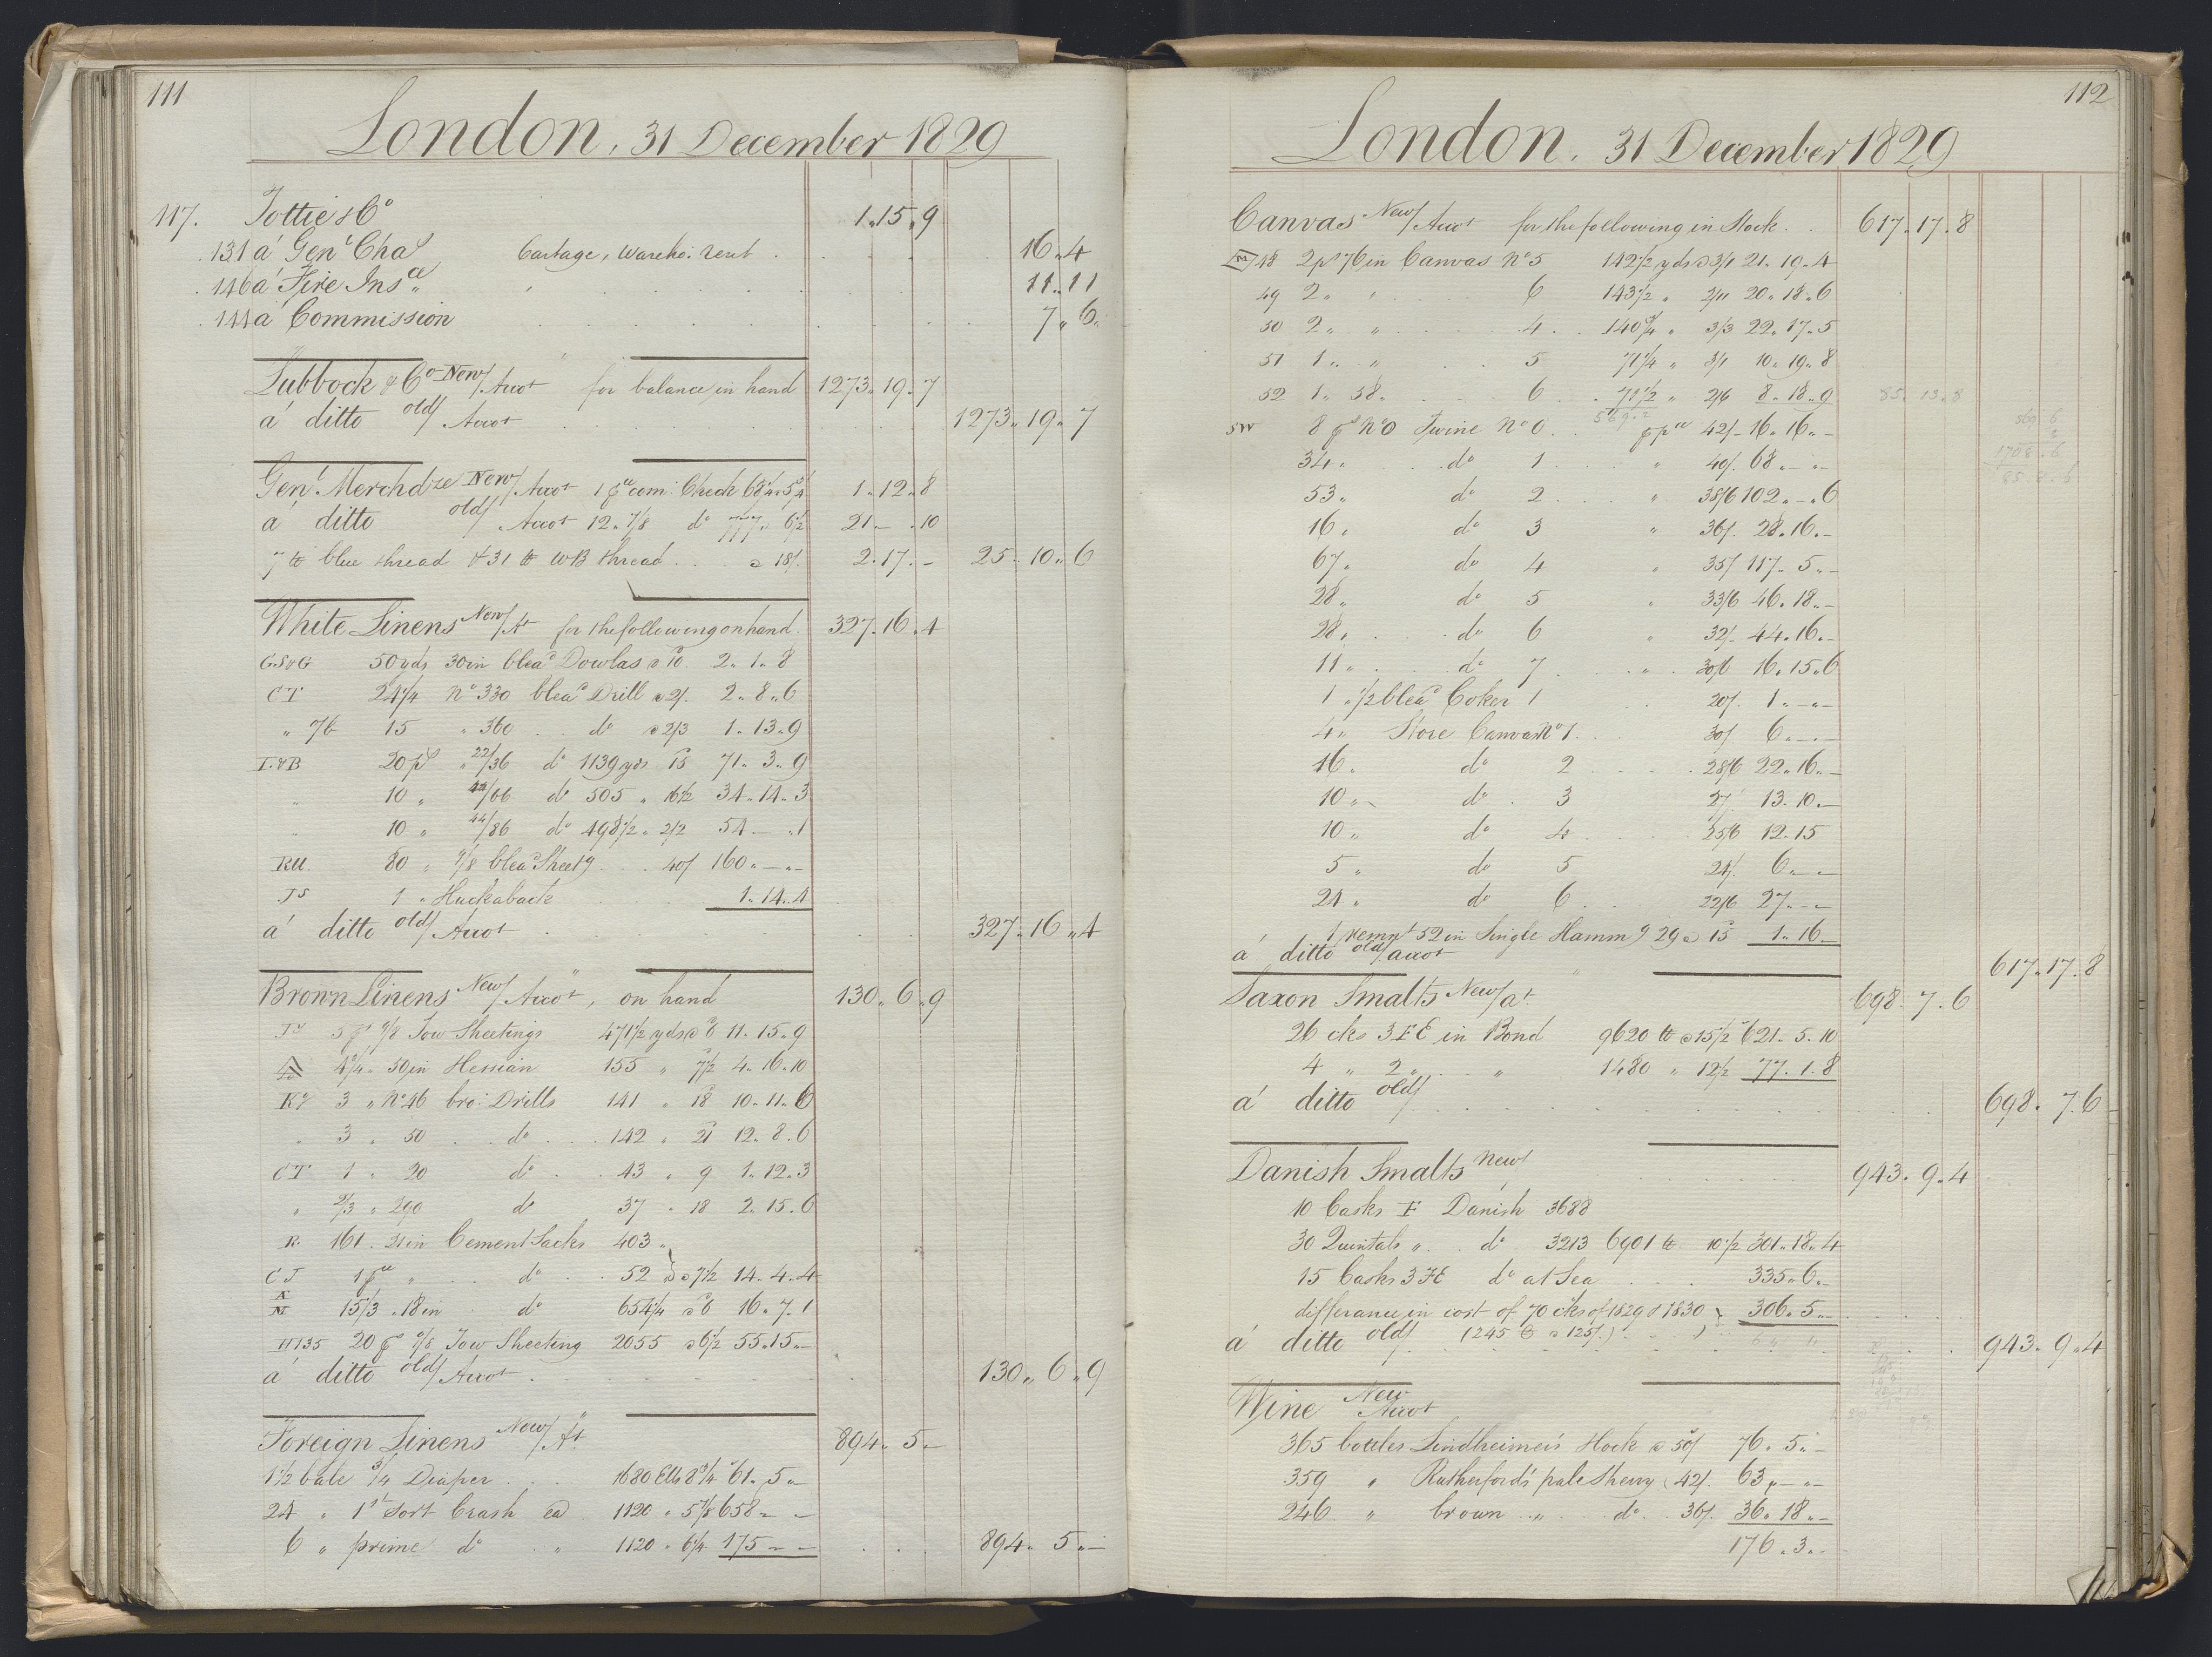 111
London, 31 December 1829
117. Tottie & Co 1 " 15 " 9
131 á Genl Chas Cartage, Wareho: rent 16 " 4
146 á Fire Insce " 11 " 11
144 á Commission 7 " 6
Lubbock & Co New/ Acct for balance in hand 1273 " 19 " 7
á ditto old/ Acct 1273 " 19 " 7
Genl Merchdze New/ Acct 1 pce com: Check 68¼ 5¾ 1 " 12 " 8
á ditto old/ Acct 12 " 7/8 do 777 " 6½ 21 " — " 10
7 lb blue thread & 31 lb WB thread a 18/. 2 " 17 " — 25 " 10 " 6
White Linens New/ At for the following on hand 327 " 16 " 4
GS&G 50 yds 30 in blead Dowlas a 10 2 " 1 " 8
CT 24¼ No 330 blead Drill a 2/. 2 " 8 " 6
" 76 15 " 360 do a 2/3 1 " 13 " 9
I.&B 20 ps 22/36 do 1139 yds 15 71 " 3 " 9
" 10 " 44/66 do 505 " 16½ 34 " 14 " 3
" 10 " 44/86 do 498½ " 2/2 54 — " 1
RU 80 " 9/8 blead Sheetg 40/ 160 " — " —
JS 1 " Huckaback 1 " 14 " 4
á ditto old/ Acct 327 " 16 " 4
Brown Linens New/ Acct, on hand 130 " 6 " 9
3 ps 9/8 Tow Sheetings 471½ yds a 6 11 " 15 " 9
50 in Hessian 155 " 7½ 4 " 16 " 10
3 " No 46 bro: Drills 141 " 18 10 " 11 " 6
" 3 " 50 do 142 " 21 12 " 8 " 6
CT 1 " 20 do 43 " 9 1 " 12 " 3
" 2/3 " 290 do 37 " 18 2 " 15 " 6
R. 161 " 21 in Cement Sacks 403 "
CT 1 pce " do 52 } a 7½ 14 " 4 " 4
15/3 " 18 in do 654¼ a 6 16 " 7 " 1
H135 20 ps 9/8 Tow Sheeting 2055 a 6½ 55 " 15 " —
á ditto old/ Acct 130 " 6 " 9
Foreign Linens New/ At 894 " 5 " —
1½ bale ¾ Diaper 1680 Ells 8¾ 61 " 5 " —
24 " 1st Sort Crash ea 1120 " 5 7/8 658 " — —
6 " prime do " 1120 " 6¼ 175 — — 894 " 5 " —
112
London, 31 December 1829
Canvas New/ Acct for the following in Stock 617 " 17 " 8
48 2 ps 76 in Canvas No 5 142½ yds a 3/1 21 " 19 " 4
49 2 " " 6 143½ " 2/11 20 " 18 " 6
50 2 " " 4 140¾ " 3/3 22 " 17 " 5
51 1 " " 5 71¼ " 3/1 10 " 19 " 8
52 1 " 38 " 6 71½ " 2/6 8 " 18 " 9 85 " 13 " 8
SW 8 ps No 0 Twine No 0 p pce 42/- 16 " 16 " —
34 " do 1 " 40/. 68 " — " —
53 " do 2 " 38/6 102 " — " 6
16 " do 3 " 36/. 28 " 16 " —
67 " do 4 " 35/ 117 " 5 " —
28 " do 5 " 33/6 46 " 18 " —
28 " do 6 " 32/. 44 " 16 " —
11 " do 7 " 30/6 16 " 15 " 6
1 " ½ blead Coker 1 20/. 1 " — " —
4 " Store Canvas No 1 30/ 6 " — " —
16 " do 2 28/6 22 " 16 " —
10 " do 3 27/ 13 " 10 " —
10 " do 4 25/6 12 " 15
5 " do 5 24/. 6 " — —
24 " do 6 22/6 27 " — " —
1 remnt 52 in Single Hammg 29 a 15 1 " 16 " —
á ditto old/ acct 617 " 17 " 8
Saxon Smalts New/ at 698 " 7 " 6
26 cks 3 F E in Bond 9620 lb a 15½ 621 " 5 " 10
4 " 2 " " 1480 " 12½ 77 " 1 " 8
á ditto old/ 698 " 7 " 6
Danish Smalts New/ 943 " 9 " 4
10 Casks F Danish 3688
30 Quintals " do 3213 6901 lb 10½ 301 " 18 " 4
15 Casks 3 FE do at Sea 335 " 6 " —
differance in cost of 70 cks of 1829 & 1830 } 306 " 5 " —
á ditto old/ (245 a 125/.) 943 " 9 " 4
Wine New Acct
365 bottles Lindheimer's Hock a 50/ 76 " 5 " —
359 " Rutherford's pale Sherry (42/. 63 " — " —
246 " brown " do 36/. 36 " 18 " —
176 " 3 " —